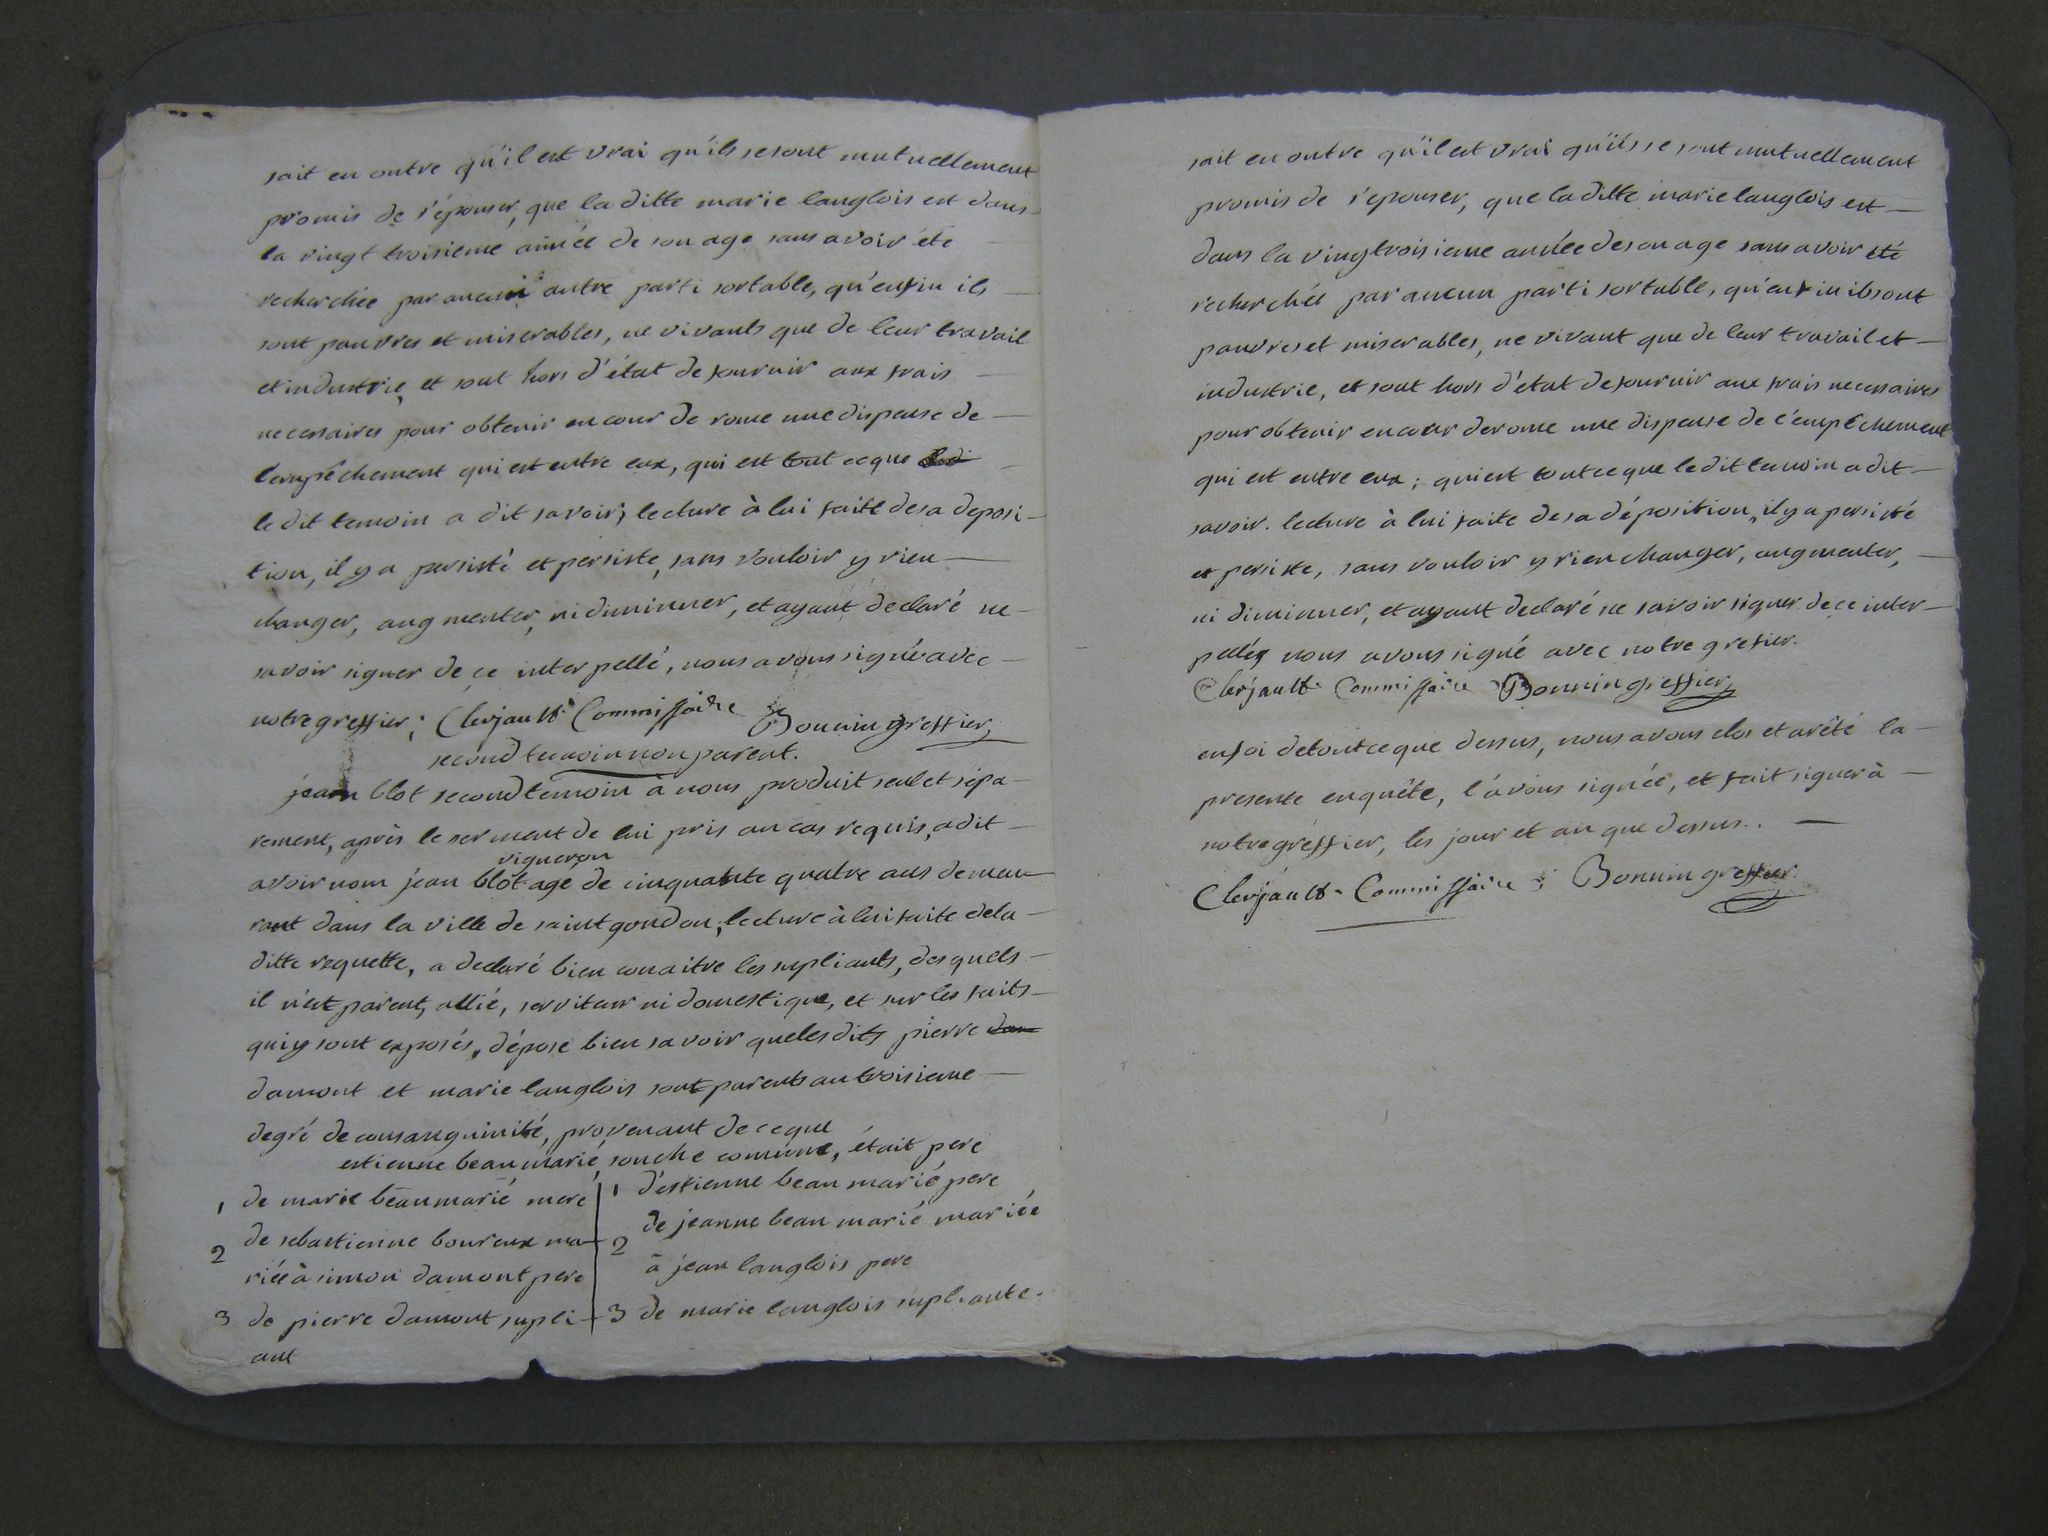 sait en outre qu'il est vrai qu'ils se sont mutuellement
promis de s'épouser, que la ditte marie langlois est dans
la vingt troisieme année de son age sans avoir été
recherchée par aucun autre parti sortable, qu'enfin ils
sont pauvres et miserables, ne vivants que de leur travail
et industrie, et sont hors d'état de fournir aux frais
necessaires pour obtenir en cour de rome une dispense de
l'empêchement qui est entre eux, qui est tout ce que
le dit temoin a dit savoir; lecture à lui faite de sa deposi-
tion, il y a persisté et persiste, sans vouloir y rien
changer, augmenter, ni diminuer, et ayant declaré ne
savoir signer de ce interpellé, nous avons signé avec
notre greffier; Clerjault Commissaire Bonnin greffier
second temoin non parent.
jean blot second temoin à nous produit seul et sépa-
rement, après le serment de lui pris au cas requis, a dit
vigneron
avoir nom jean blot agé de cinquante quatre ans demeu-
rant dans la ville de saint gondon, lecture à lui faite de la
ditte requette, a declaré bien conaitre les supliants, desquels
il n'est parent, allié, serviteur ni domestique, et sur les faits
qui y sont exposés, dépose bien savoir que les dits pierre dam
damont et marie langlois sont parents au troisieme
degré de consanguinité, provenant de ce que
estienne beaumarié, souche comune, était pere
1 de marie beaumarié mere
de sebastienne boureux ma-
2
riée à simon damont pere
3 de pierre damont supli-
ant
1 d'estienne beaumarié pere
de jeanne beaumarié mariée
2
à jean langlois pere
3 de marie langlois supliante.
sait en outre qu'il est vrai qu'ils se sont mutuellement
promis de s'epouser, que la ditte marie langlois est
dans la vingtroisieme année de son age sans avoir été
recherchée par aucun parti sortable, qu'enfin ils sont
pauvres et miserables, ne vivant que de leur travail et
industrie, et sont hors d'état de fournir aux frais necessaires
pour obtenir en cour de rome une dispense de l'empêchement
qui est entre eux; qui est tout ce que le dit temoin a dit
savoir. lecture à lui faite de sa déposition, il y a persisté
et persiste, sans vouloir y rien changer, augmenter,
ni diminuer, et ayant declaré ne savoir signer de ce inter-
pellé, nous avons signé avec notre grefier.
Clerjault Commissaire Bonnin greffier
en foi de tout ce que dessus, nous avons clos et arêté la
presente enquête, l'avons signée, et fait signer à
notre gréffier, les jour et an que dessus.
Clerjault Commissaire Bonnin greffier.